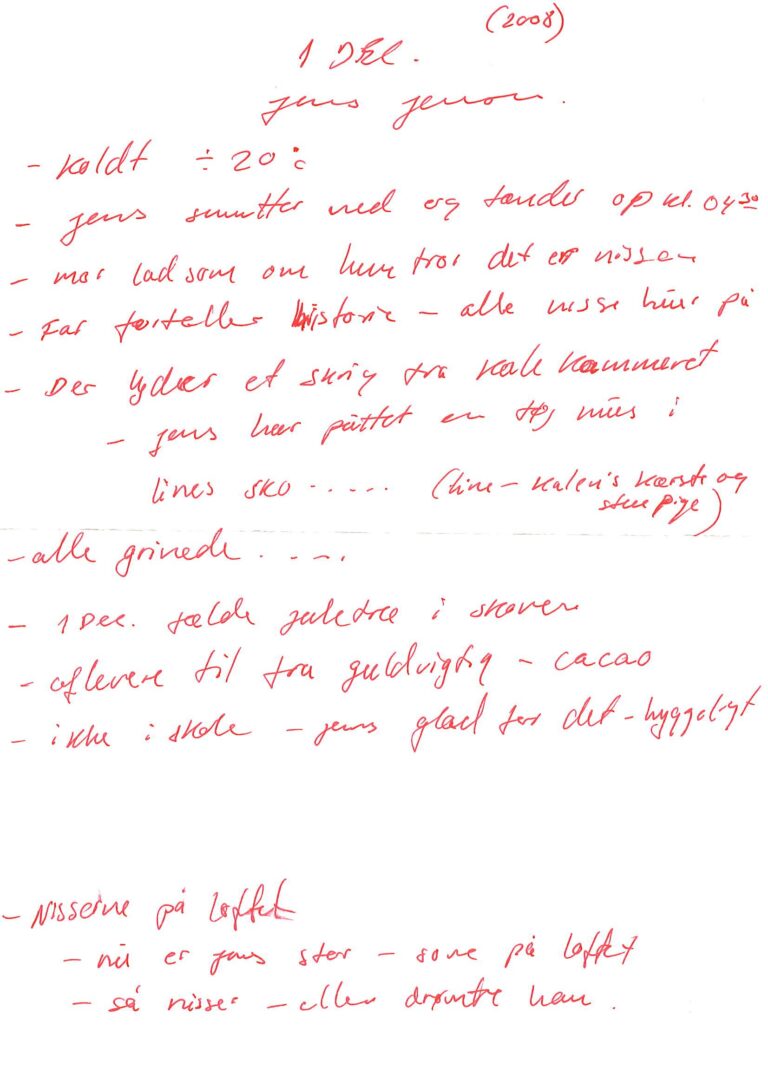 (2008)
1 DEC.
Jens Jenson.
- Koldt ÷ 20 °C
- Jens smutter ned og tænder op kl. 04 30
- mor lad som om hun tror det er nissen
- Far fortæller historie - alle nisse huer på
- Der lyder et skrig fra Kalle Kammeret
- Jens har puttet en tøj mus i
lines sko ...... (Line - Kalen's kæreste og
stue pige)
- alle grinede .....
- 1 Dec. fælde juletræ i skoven
- aflevere til fra guldvigtig - cacao
- ikke i skole - Jens glad for det - hyggeligt
- Nisserne på loftet
- nu er Jens stor - sove på loftet
- så nisser - eller drømte han.